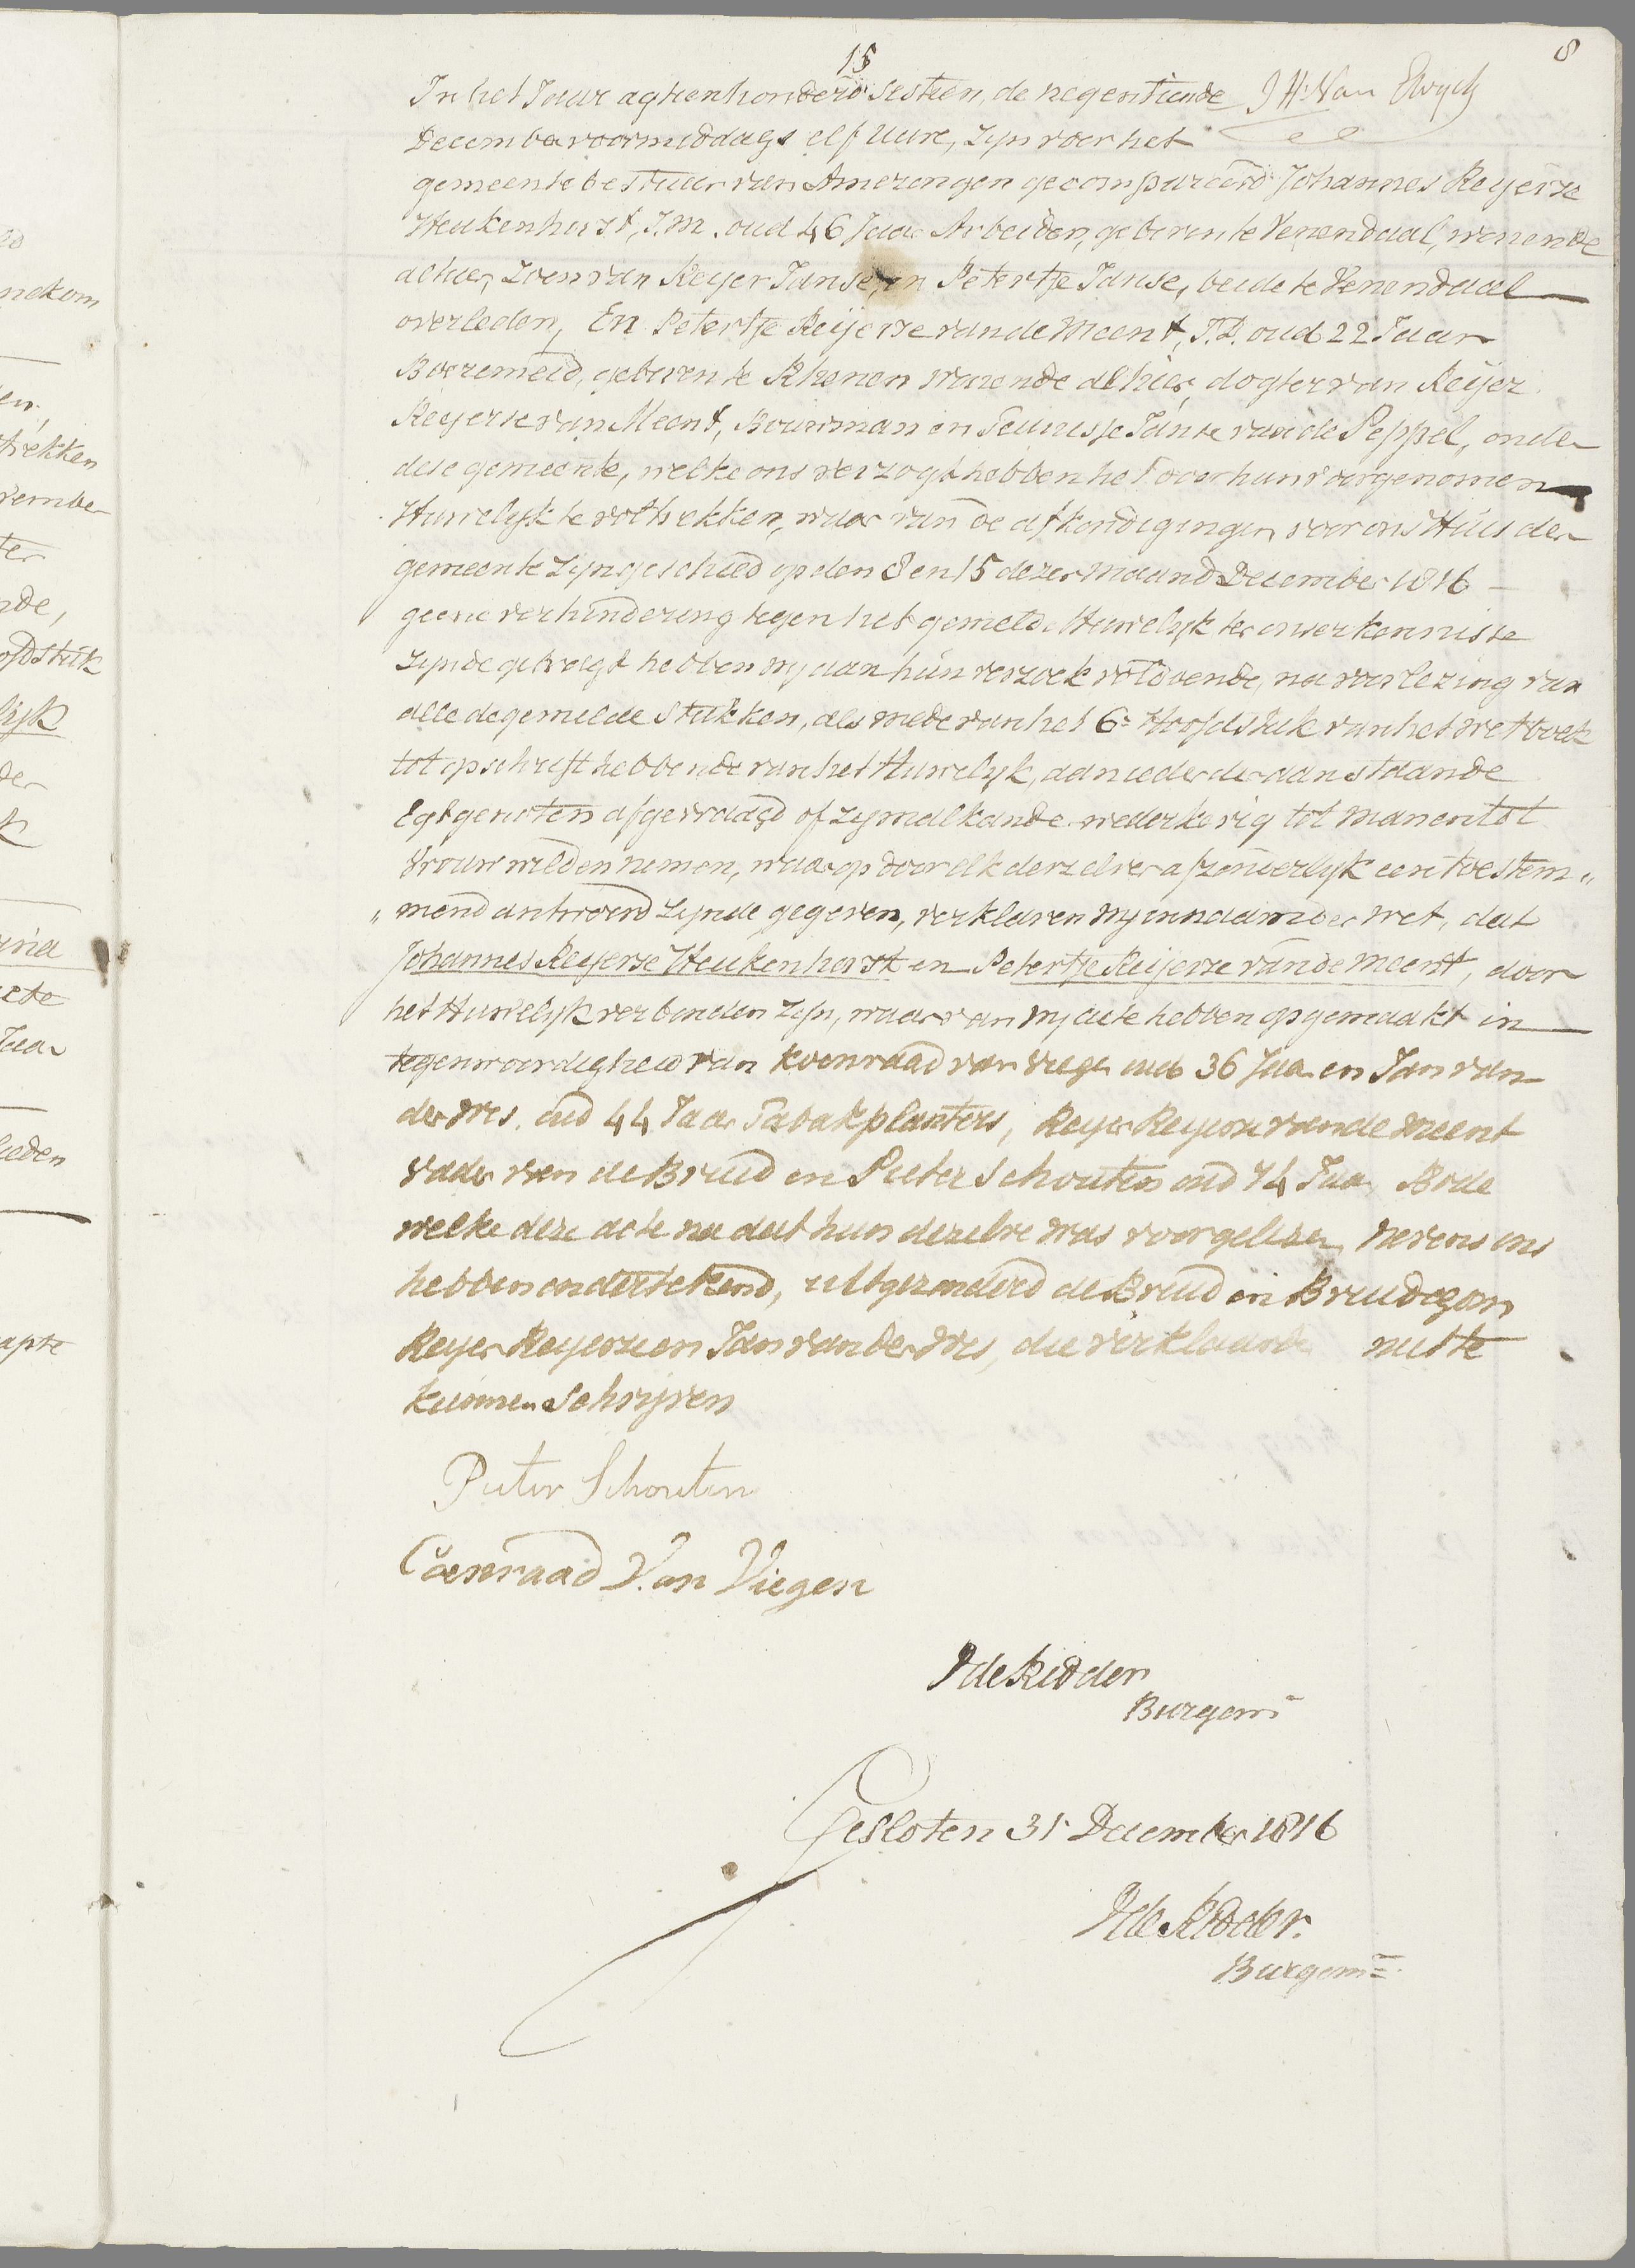 8
15
In het Jaar agtienhonderd Sestien, de negentiende J H: Van
December voormiddags elf Uure, zijn voor het
gemeente bestuur van Amerongen gecompareerd Johannes Reijerse
Heukenhorst, J.M. oud 46 Jaar Arbeider, geboren te Venendaal, wonende
alhier, Zoon van Reijer Janse, en Petertje Janse, beide te Venendaal
overleden, En Petertje Reijerse van de Meent, J.D. oud 22 Jaar
Boeremeid, geboren te Rhenen wonende alhier, dogter van Reijer
Reijerse van Meent, Bouwman en Teunisje Janse van de Peppel, onder
dese gemeente, welke ons verzogt hebben het over hun voorgenomen
Huwelijk te voltrekken, waar van de afkondigingen voor ons Huis der
gemeente Zijn geschied op den 8 en 15 dezer maand December 1816 —
geene verhindering tegen het gemelde Huwelijk ter onzer kennisse
zijnde gebragt hebben wij aan hun verzoek voldoende, na voorlezing van
alle de gemelde Stukken, als mede van het 6e Hoofdstuk van het wetboek
tot opschrift hebbende van het Huwelijk, aan ieder der aanstaande
Egtgenoten afgevraagd of zij malkander wederkerig tot Man en tot
Vrouw wilden nemen, waar op door elk derzelver afzonderlijk een toestem„
„mend antwoord zijnde gegeven, verklaren wij in naam der wet, dat
Johannes Reijerse Heukenhorst en Petertje Reijerse van de Meent, door
het Huwelijk verbonden zijn, waar van wij acte hebben opgemaakt in
tegenwoordigheid van Koenraad van Viegen oud 36 Jaar en Jan van
der Wes. oud 44 Jaar Tabakplanters, Reijer Reijerse van de Meent
vader van de Bruid en Pieter Schouten oud 74 Jaar, Bode
welke deze acte na dat hun dezelve was voorgelezen, nevens ons
hebben ondertekend, uitgezonderd de Bruid en Bruidegom
Reijer Reijerse en Jan van der Wes, die verklaarde niet te
kunnen Schrijven
Pieter Schouten
Coenraad Van Viegen
J de Ridder
Burgemr
Gesloten 31 December 1816
J de Ridder.
Burgemr